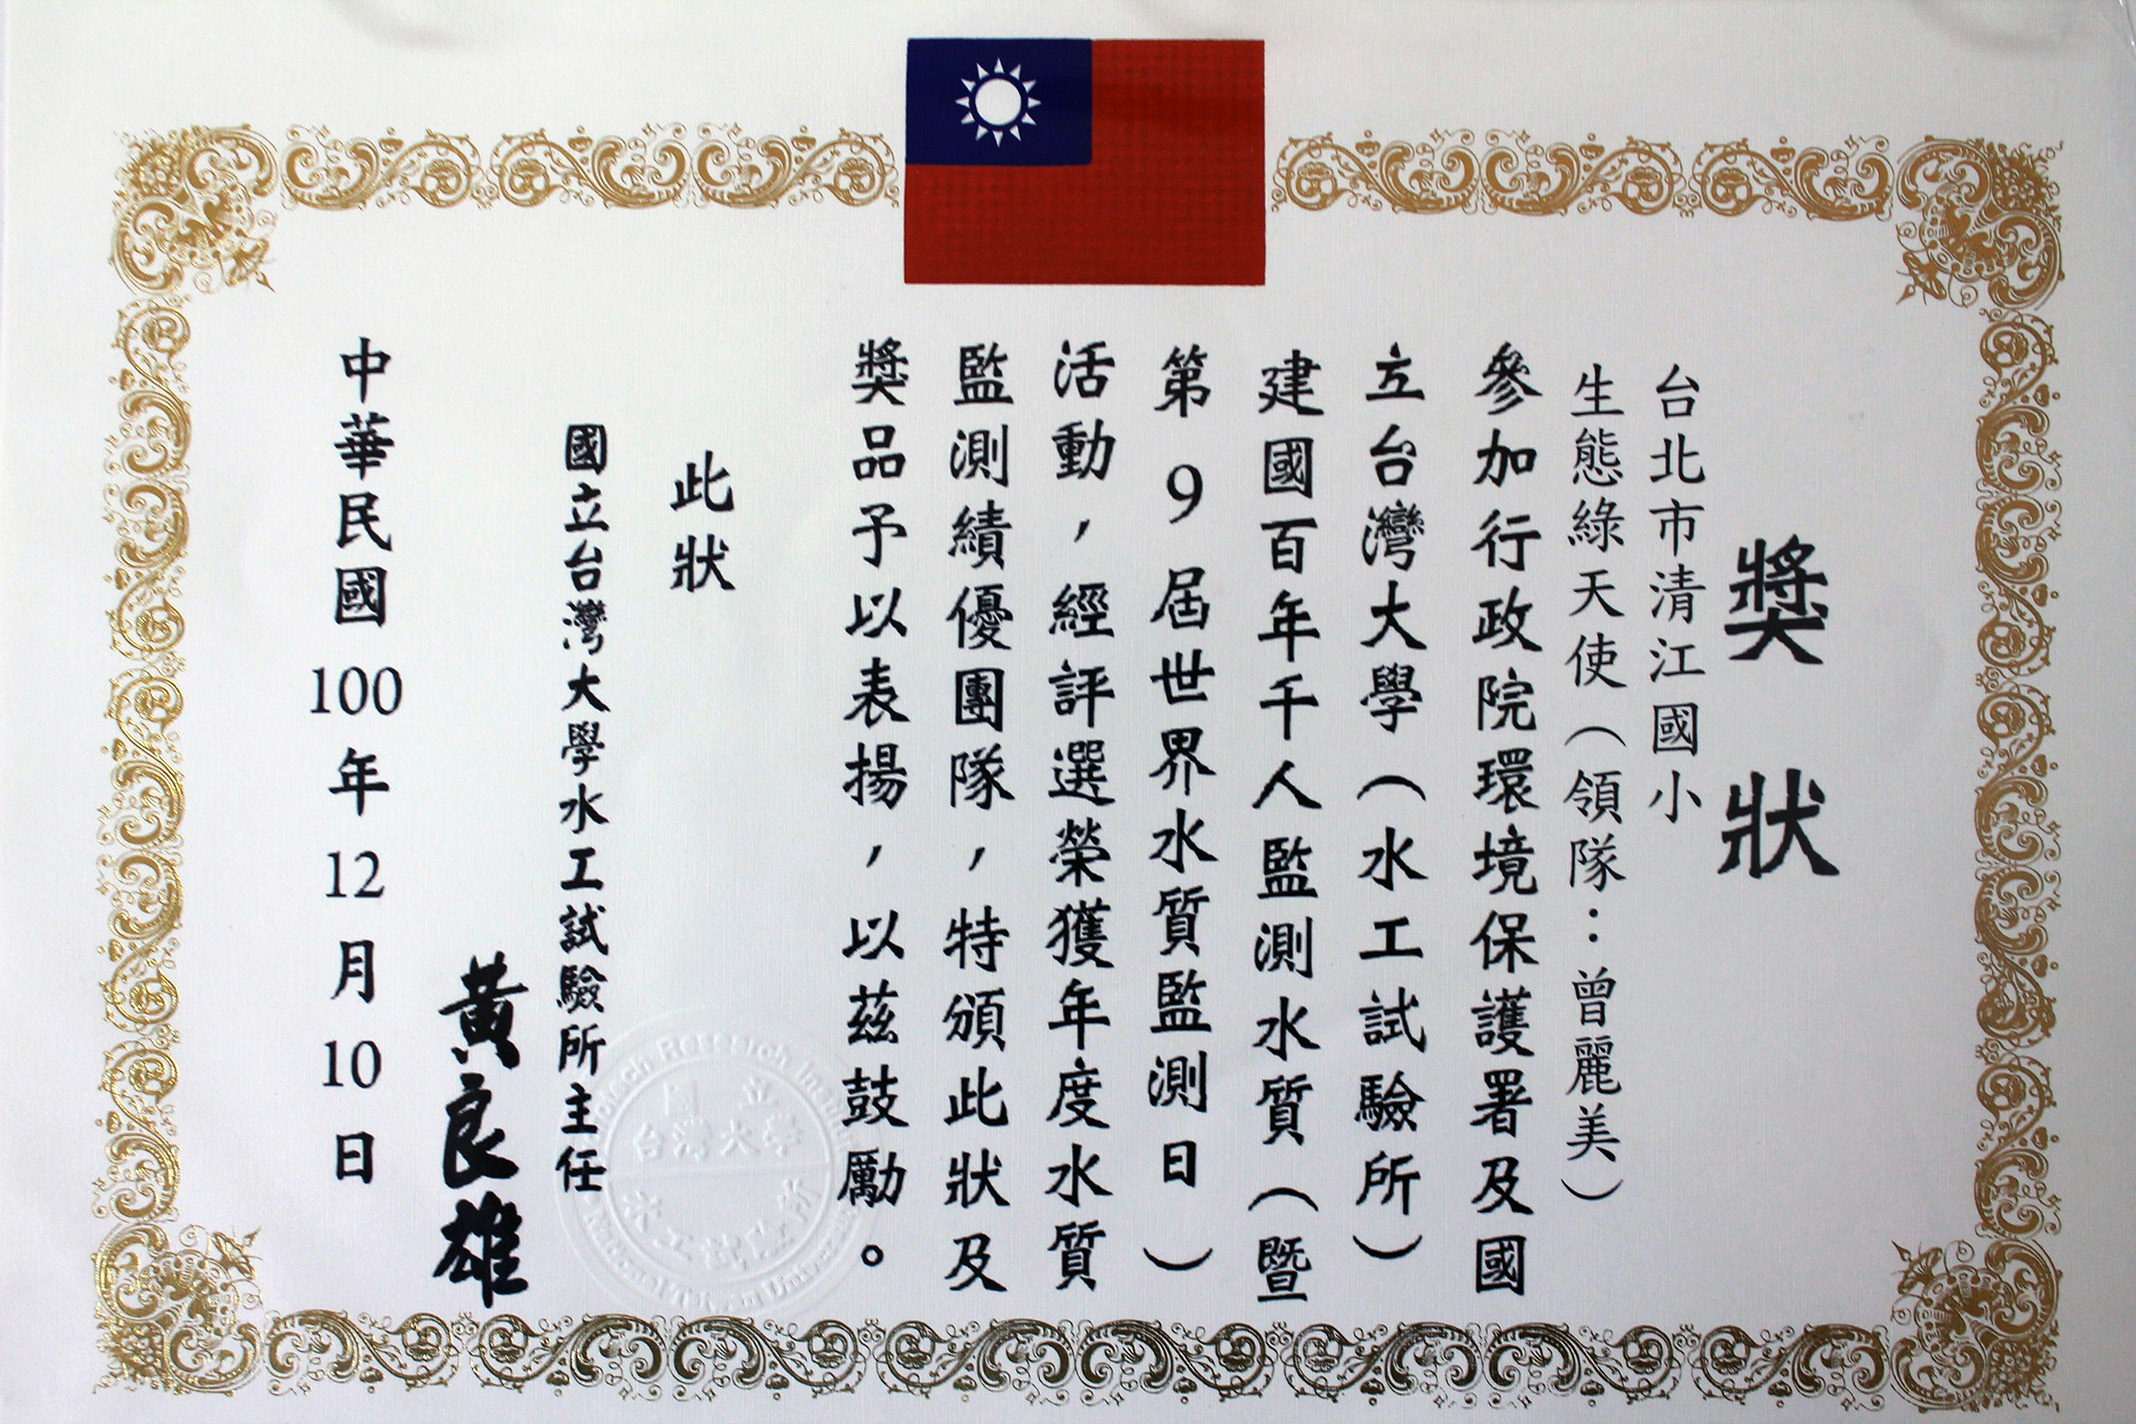 獎狀
台北市清江國小
生態綠天使（領隊：曾麗美）
參加行政院環境保護署及國
立台灣大學（水工試驗所）
建國百年千人監測水質（暨
第9屆世界水質監測日）
活動，經評選榮獲年度水質
監測績優團隊，特頒此狀及
獎品予以表揚，以茲鼓勵。
此狀
國立台灣大學水工試驗所主任
黃良雄
中華民國100年12月10日
國立
台灣大學
水工試驗所